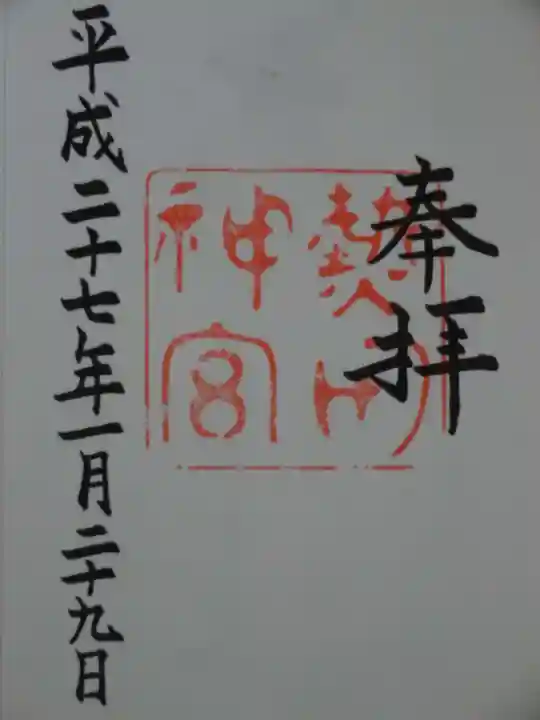 奉拝
熱田
神宮
平成二十七年一月二十九日